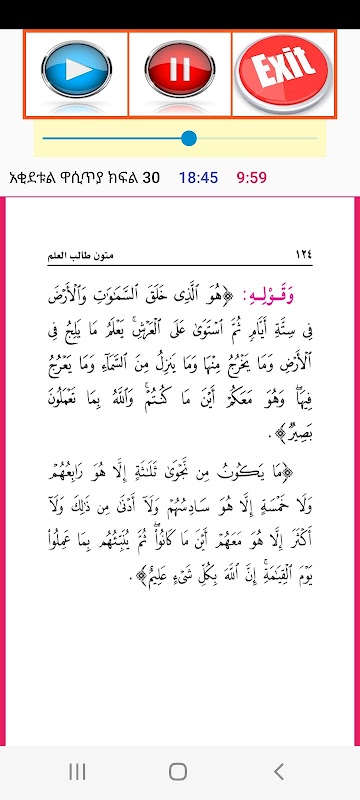 Exit
አቂደቱል ዋሲጥያ ክፍል 30 18:45 9:59
١٢٤ متون طالب العلم
وَقَوْلِهِ: ﴿هُوَ ٱلَّذِى خَلَقَ ٱلسَّمَٰوَٰتِ وَٱلْأَرْضَ
فِى سِتَّةِ أَيَّامٍ ثُمَّ ٱسْتَوَىٰ عَلَى ٱلْعَرْشِۚ يَعْلَمُ مَا يَلِجُ فِى
ٱلْأَرْضِ وَمَا يَخْرُجُ مِنْهَا وَمَا يَنزِلُ مِنَ ٱلسَّمَآءِ وَمَا يَعْرُجُ
فِيهَاۖ وَهُوَ مَعَكُمْ أَيْنَ مَا كُنتُمْۚ وَٱللَّهُ بِمَا تَعْمَلُونَ
بَصِيرٌ﴾.
﴿مَا يَكُونُ مِن نَّجْوَىٰ ثَلَٰثَةٍ إِلَّا هُوَ رَابِعُهُمْ
وَلَا خَمْسَةٍ إِلَّا هُوَ سَادِسُهُمْ وَلَآ أَدْنَىٰ مِن ذَٰلِكَ وَلَآ
أَكْثَرَ إِلَّا هُوَ مَعَهُمْ أَيْنَ مَا كَانُوا۟ۖ ثُمَّ يُنَبِّئُهُم بِمَا عَمِلُوا۟
يَوْمَ ٱلْقِيَٰمَةِۚ إِنَّ ٱللَّهَ بِكُلِّ شَىْءٍ عَلِيمٌ﴾.